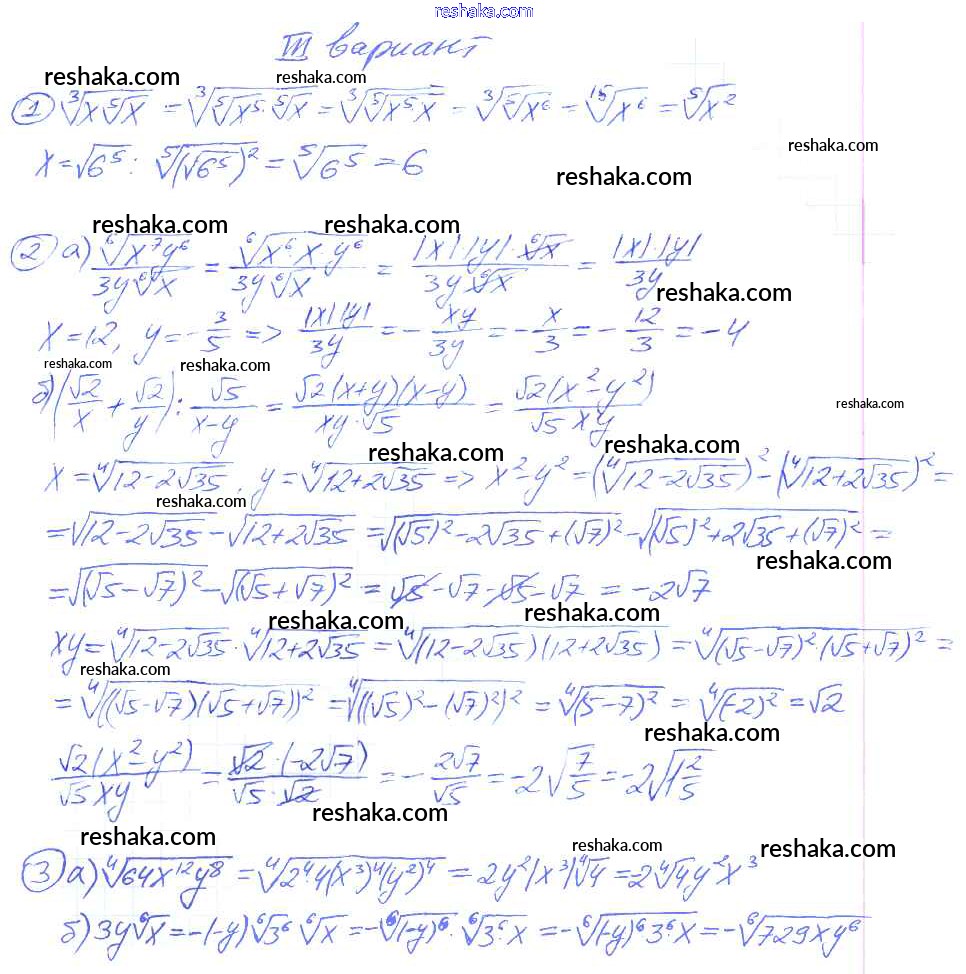 reshaka.com
III вариант
reshaka.com reshaka.com
① ∛(x ⁵√x) = ∛(⁵√x⁵ · ⁵√x) = ∛(⁵√(x⁵·x)) = ∛(⁵√x⁶) = ¹⁵√x⁶ = ⁵√x²
reshaka.com
x = √6⁵ : ⁵√((√6⁵)²) = ⁵√6⁵ = 6
reshaka.com
reshaka.com reshaka.com
② а) ⁶√(x⁷y⁶) / (3y ⁶√x) = ⁶√(x⁶·x·y⁶) / (3y ⁶√x) = |x||y|·⁶√x / (3y ⁶√x) = |x|·|y| / 3y
reshaka.com
x = 12, y = -3/5 => |x||y| / 3y = - xy/3y = - x/3 = - 12/3 = -4
reshaka.com reshaka.com
б) (√2/x + √2/y) : √5/(x-y) = √2(x+y)(x-y) / (xy·√5) = √2(x²-y²) / (√5 xy)
reshaka.com
reshaka.com reshaka.com
x = ⁴√(12-2√35), y = ⁴√(12+2√35) => x²-y² = (⁴√(12-2√35))² - (⁴√(12+2√35))² =
reshaka.com
= √(12-2√35) - √(12+2√35) = √((√5)²-2√35+(√7)²) - √((√5)²+2√35+(√7)²) =
reshaka.com
= √((√5-√7)²) - √((√5+√7)²) = √5-√7-√5-√7 = -2√7
reshaka.com reshaka.com
xy = ⁴√(12-2√35) · ⁴√(12+2√35) = ⁴√((12-2√35)(12+2√35)) = ⁴√((√5-√7)²·(√5+√7)²) =
reshaka.com
= ⁴√(((√5-√7)(√5+√7))²) = ⁴√(((√5)²-(√7)²)²) = ⁴√((5-7)²) = ⁴√((-2)²) = √2
reshaka.com
√2(x²-y²) / (√5 xy) = √2·(-2√7) / (√5·√2) = - 2√7/√5 = -2√(7/5) = -2√(1 2/5)
reshaka.com reshaka.com
reshaka.com reshaka.com
③ а) ⁴√(64x¹²y⁸) = ⁴√(2⁴·4(x³)⁴(y²)⁴) = 2y²|x³|⁴√4 = 2⁴√4 y²x³
б) 3y ⁶√x = -(-y) ⁶√3⁶ ⁶√x = -⁶√((-y)⁶) · ⁶√(3⁶·x) = -⁶√((-y)⁶3⁶·x) = -⁶√(729xy⁶)